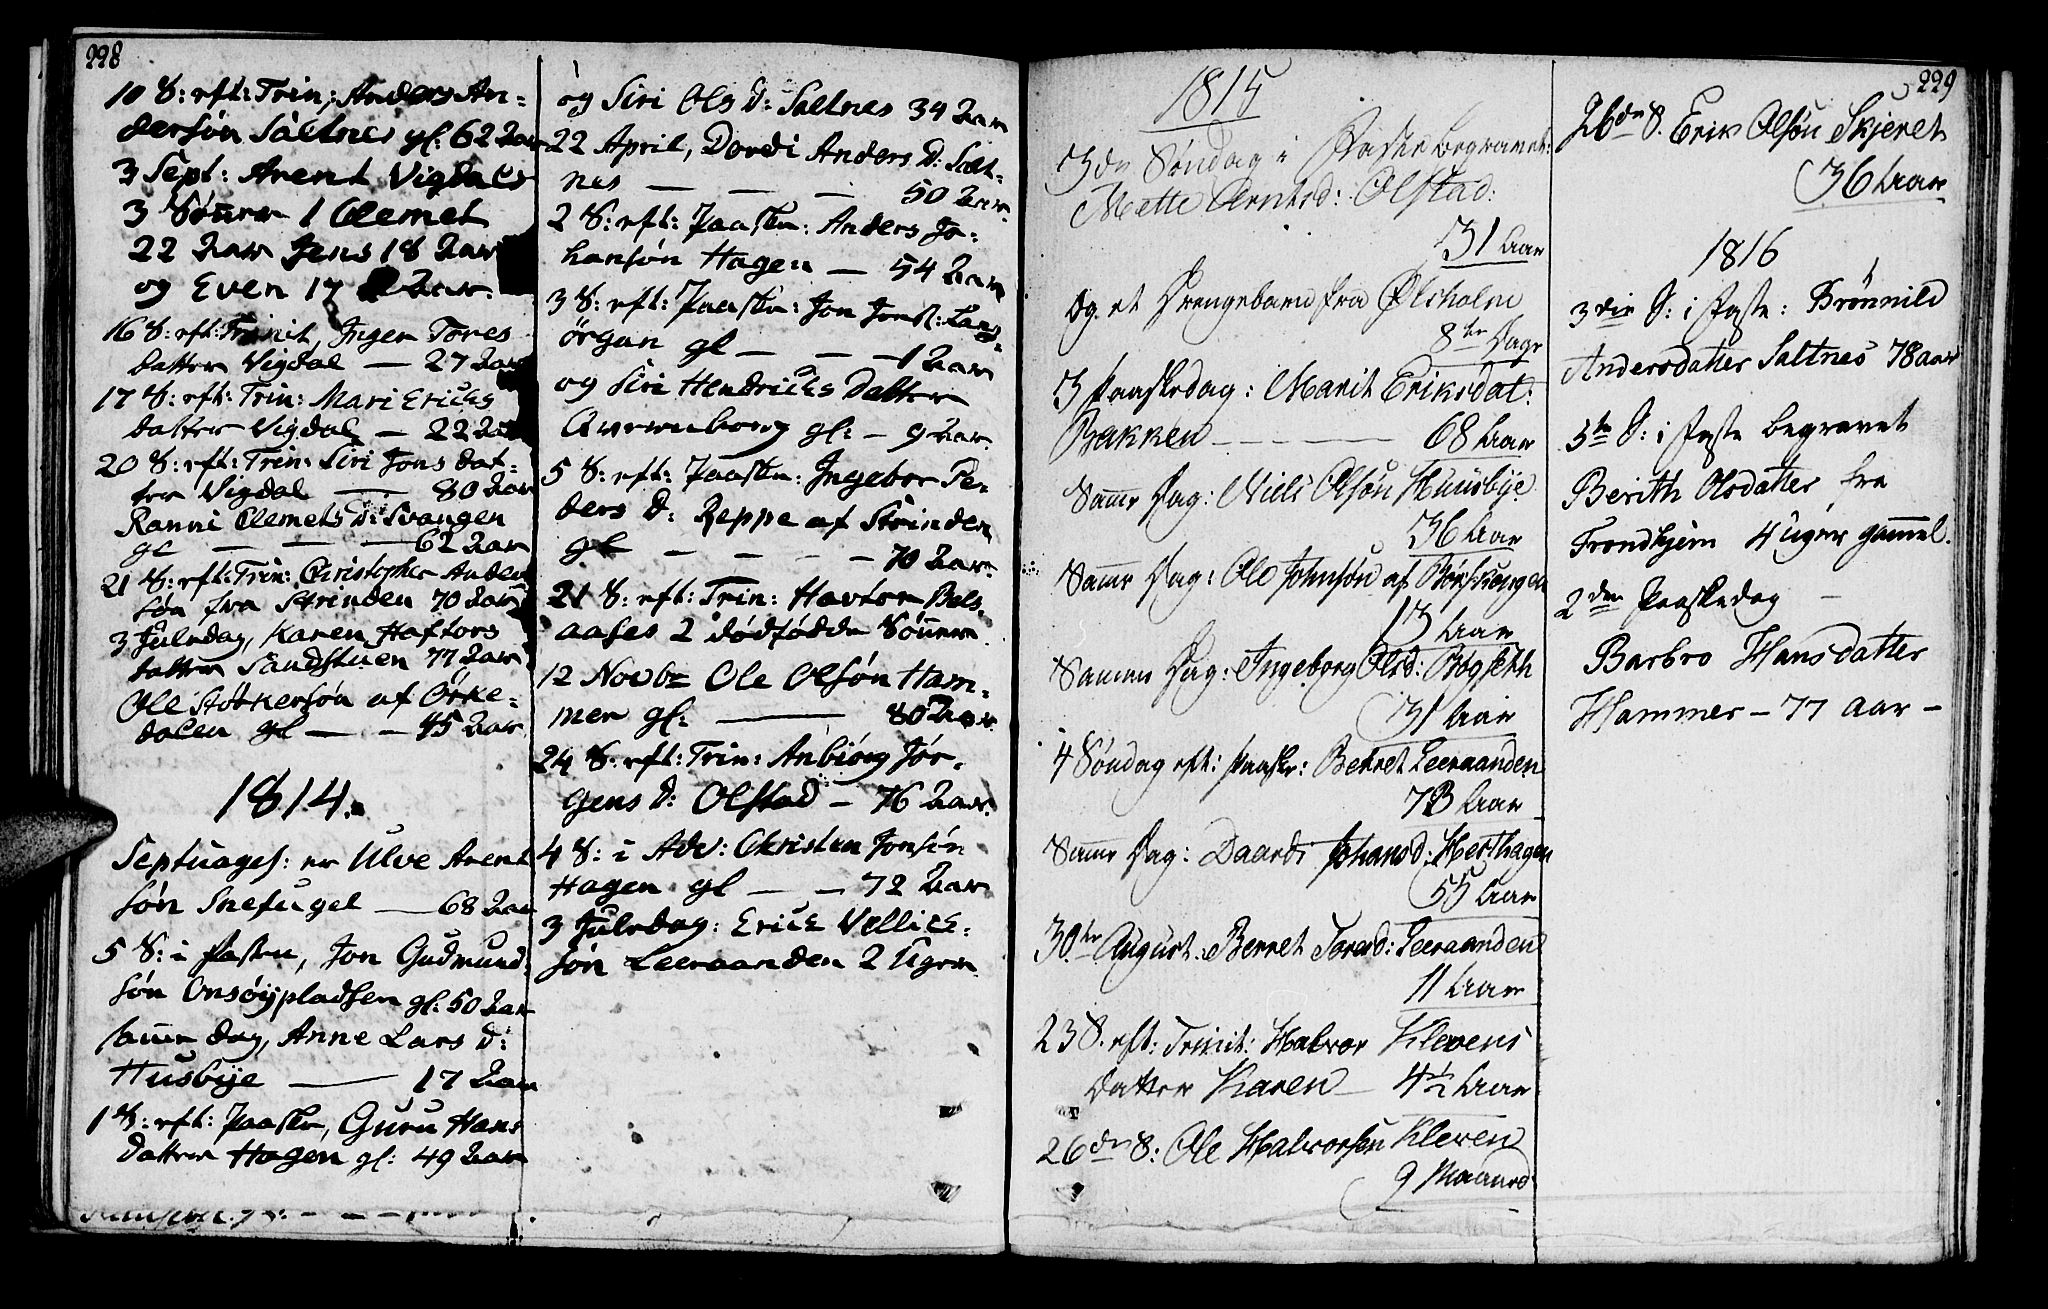 228
10 S: eft: Trin: Anders An-
dersøn Saltnes gl: 62 Aar
3 Sept: Arent Vigdals
3 Sønner 1 Clemet
22 Aar Jens 18 Aar
og Even 17 Aar.
16 S: eft: Trinit, Inger Tores
datter Vigdal — 27 Aar
17 S: eft: Trin: Mari Ericks
datter Vigdal — 22 Aar
20 S: eft: Trin: Siri Jons dat-
ter Vigdal — 80 Aar
Ranni Clemets D: Svangen
gl — — — 62 Aar
21 S: eft: Trin: Christopher Anders
søn fra Strinden 70 Aar
3 Juledag, Karen Haftors
datter Sandstuen 77 Aar
Ole Stotkersøn af Örke-
dalen gl — — 45 Aar
1814.
Septuages: er Ulve Arent
søn Snefugel — 68 Aar
5 S: i Fasten, Jon Gudmund-
søn Onsøypladsen gl: 50 Aar
samme dag, Anne Lars D:
Husbye — 17 Aar
1 S: eft: Paaske, Guru Hans
datter Hagen gl: 49 Aar
og Siri Ols D: Saltnes 34 Aar
22 April, Dordi Anders D: Salt-
nes — — — 50 Aar
2 S: eft: Paaske: Anders Jo-
hansøn Hagen — 54 Aar
3 S: eft: Paaske: Jon Jons: Lang-
örgan gl — — — 1 Aar
og Siri Hendricks Datter
gl: — 9 Aar
5 S: eft: Paaske: Ingebor Pe-
ders D: Reppe af Strinden
gl — — — — 70 Aar
21 S: eft: Trin: Havtor Bels-
aases 2 dødfødde Sønner
12 Novbr Ole Olsøn Ham-
mer gl: — 80 Aar
24 S: eft: Trin: Anbiørg Jör-
gens D: Olstad — 76 Aar
4 S: i Adv: Christen Jonsøn
Hagen gl — — 72 Aar
3 Juledag: Erick Vellick-
søn Leeraanden 2 Uger
229
1815
3de Søndag i Faste begravet:
Mette Arntsd: Olstad:
31 Aar
Og et Drengebarn fra Ølsholm
8te Dage
3 Paaskedag: Marit Eriksdat:
Bakken — — — — 68 Aar
Samme Dag: Niels Olsøn Huusbÿe
36 Aar
Samme Dag: Ole Johnsøn af Børskongen
13 Aar
Samme Dag: Ingeborg Olsd: Bógseth
31 Aar
4 Søndag eft: Paaske: Behret Leeraanden
73 Aar
Samme Dag: Daardi Johansd: Hesthagen
55 Aar
30te August: Berret Toresd: Leeraanden
11 Aar
23 S. eft: Trinit: Halvor Klevens
Datter Karen — 4½ Aar
26de S: Ole Halvorsøn Kleven
9 Maaned
26de S. Erik Olsøn Skjeret
36 Aar
1816
3die S: i Faste: Brønnild
Andersdatter Saltnes 78 aar
5te S: i Faste begravet
Berith Olsdatter fra
Trondhjem 4 Uger gammel.
2den Paaskedag —
Barbro Hansdatter
Hammer — 77 Aar —